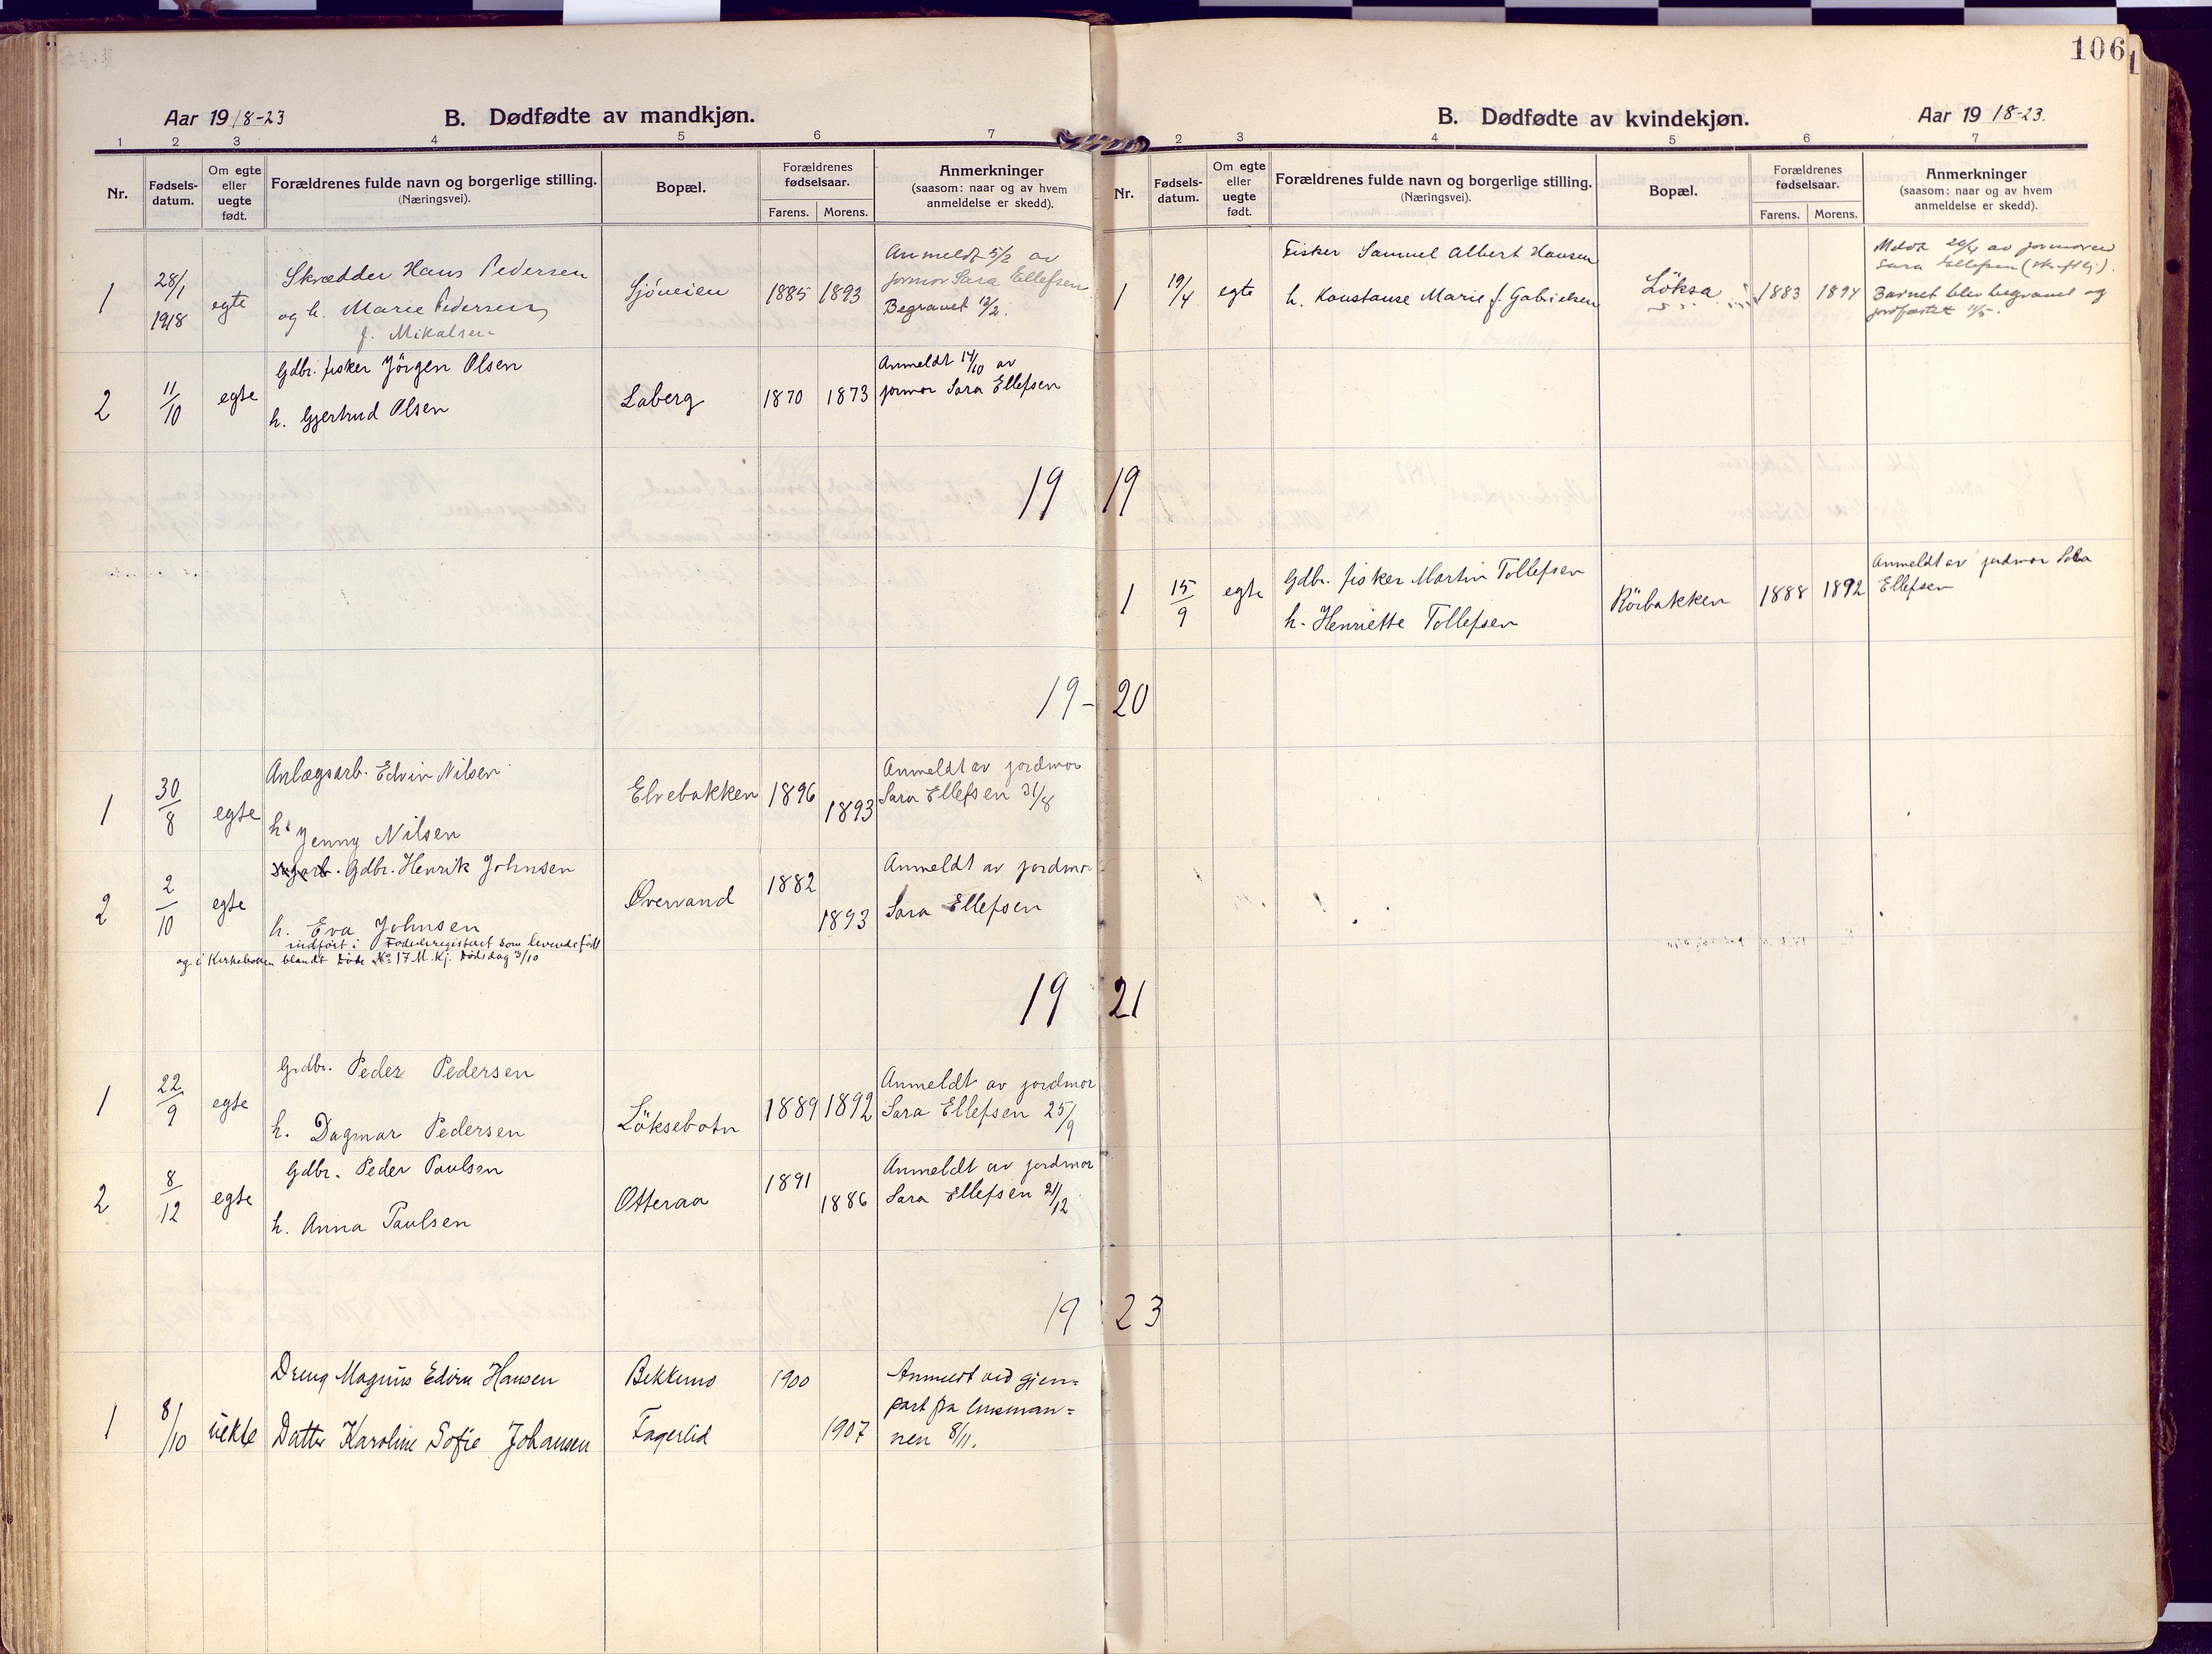 106
Aar 1918-23
B. Dødfødte av mandkjøn.
1 2 3 4 5 6 7
Nr.
Fødsels-
datum.
Om egte
eller
uegte
født.
Forældrenes fulde navn og borgerlige stilling.
(Næringsvei).
Bopæl.
Forældrenes
fødselsaar.
Farens. Morens.
Anmerkninger
(saasom: naar og av hvem
anmeldelse er skedd).
1 28/1 1918 egte
Skrædder Hans Pedersen
og h. Marie Pedersen
f. Mikalsen
Sjöveien 1885 1893
Anmeldt 5/2 av
jormor Sara Ellefsen
Begravet 12/2.
2 11/10 egte
Gdbr. fisker Jörgen Olsen
h. Gjertrud Olsen
Laberg 1870 1873
Anmeldt 14/10 av
jormor Sara Ellefsen
19 19
19-20
1 30/8 egte
Anlægsarb. Edvin Nilsen
h. Jenny Nilsen
Elvebakken 1896 1893
Anmeldt av jordmor
Sara Ellefsen 31/8
2 2/10 egte
Gdbr. Henrik Johnsen
h. Eva Johnsen
indfört i Födselsregisteret som levendefödt
og i Kirkeboken blandt Döde No 17 M.Kj. Dödsdag 3/10
Övervand 1882 1893
Anmeldt av jordmor
Sara Ellefsen
19 21
1 22/9 egte
Grdbr. Peder Pedersen
h. Dagmar Pedersen
Löksebotn 1889 1892
Anmeldt av jordmor
Sara Ellefsen 25/9
2 8/12 egte
Gdbr. Peder Paulsen
h. Anna Paulsen
Otteraa 1891 1886
Anmeldt av jordmor
Sara Ellefsen 21/12
19 23
1 8/10 uekte
Dreng Magnus Edvin Hansen
Datter Karoline Sofie Johansen
Bekkemo 1900
Fagerlid 1907
Anmeldt ved gjen=
part fra lensman=
nen 8/11.
B. Dødfødte av kvindekjøn.
Aar 1918-23.
2 3 4 5 6 7
Nr.
Fødsels-
datum.
Om egte
eller
uegte
født.
Forældrenes fulde navn og borgerlige stilling.
(Næringsvei).
Bopæl.
Forældrenes
fødselsaar.
Farens. Morens.
Anmerkninger
(saasom: naar og av hvem
anmeldelse er skedd).
1 19/4 egte
Fisker Samuel Albert Hansen
h. Konstanse Marie f. Gabrielsen
Löksa 1883 1894
Meldt av jormoren
Sara Ellefsen (skriftlig).
Barnet blev begravet og
jordfæstet 11/5.
1 15/9 egte
Gdbr. fisker Martin Tollefsen
h. Henriette Tollefsen
Rörbakken 1888 1892
Anmeldt av jordmor Sara
Ellefsen